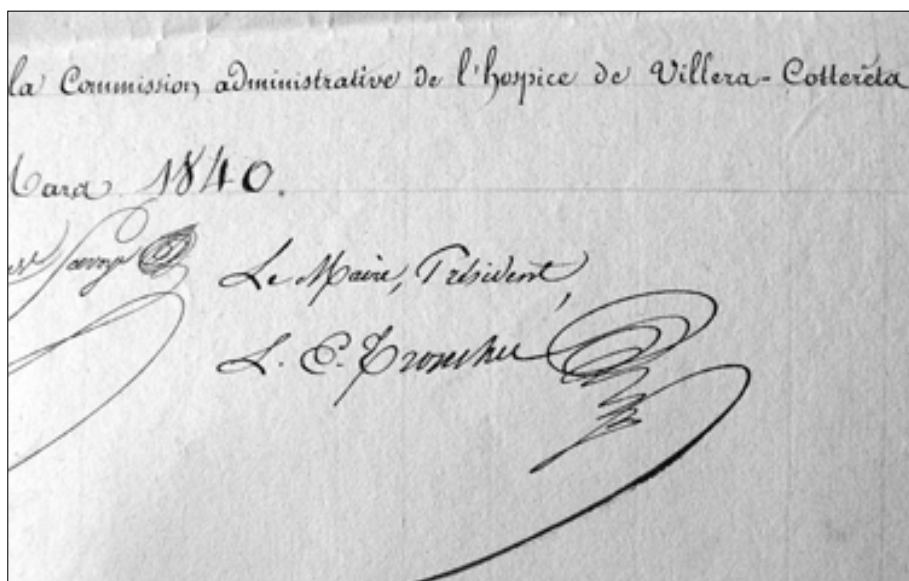 la Commission administrative de l'hospice de Villers-Cotterêts
Mars 1840.
Le Maire, Président,
L. C.